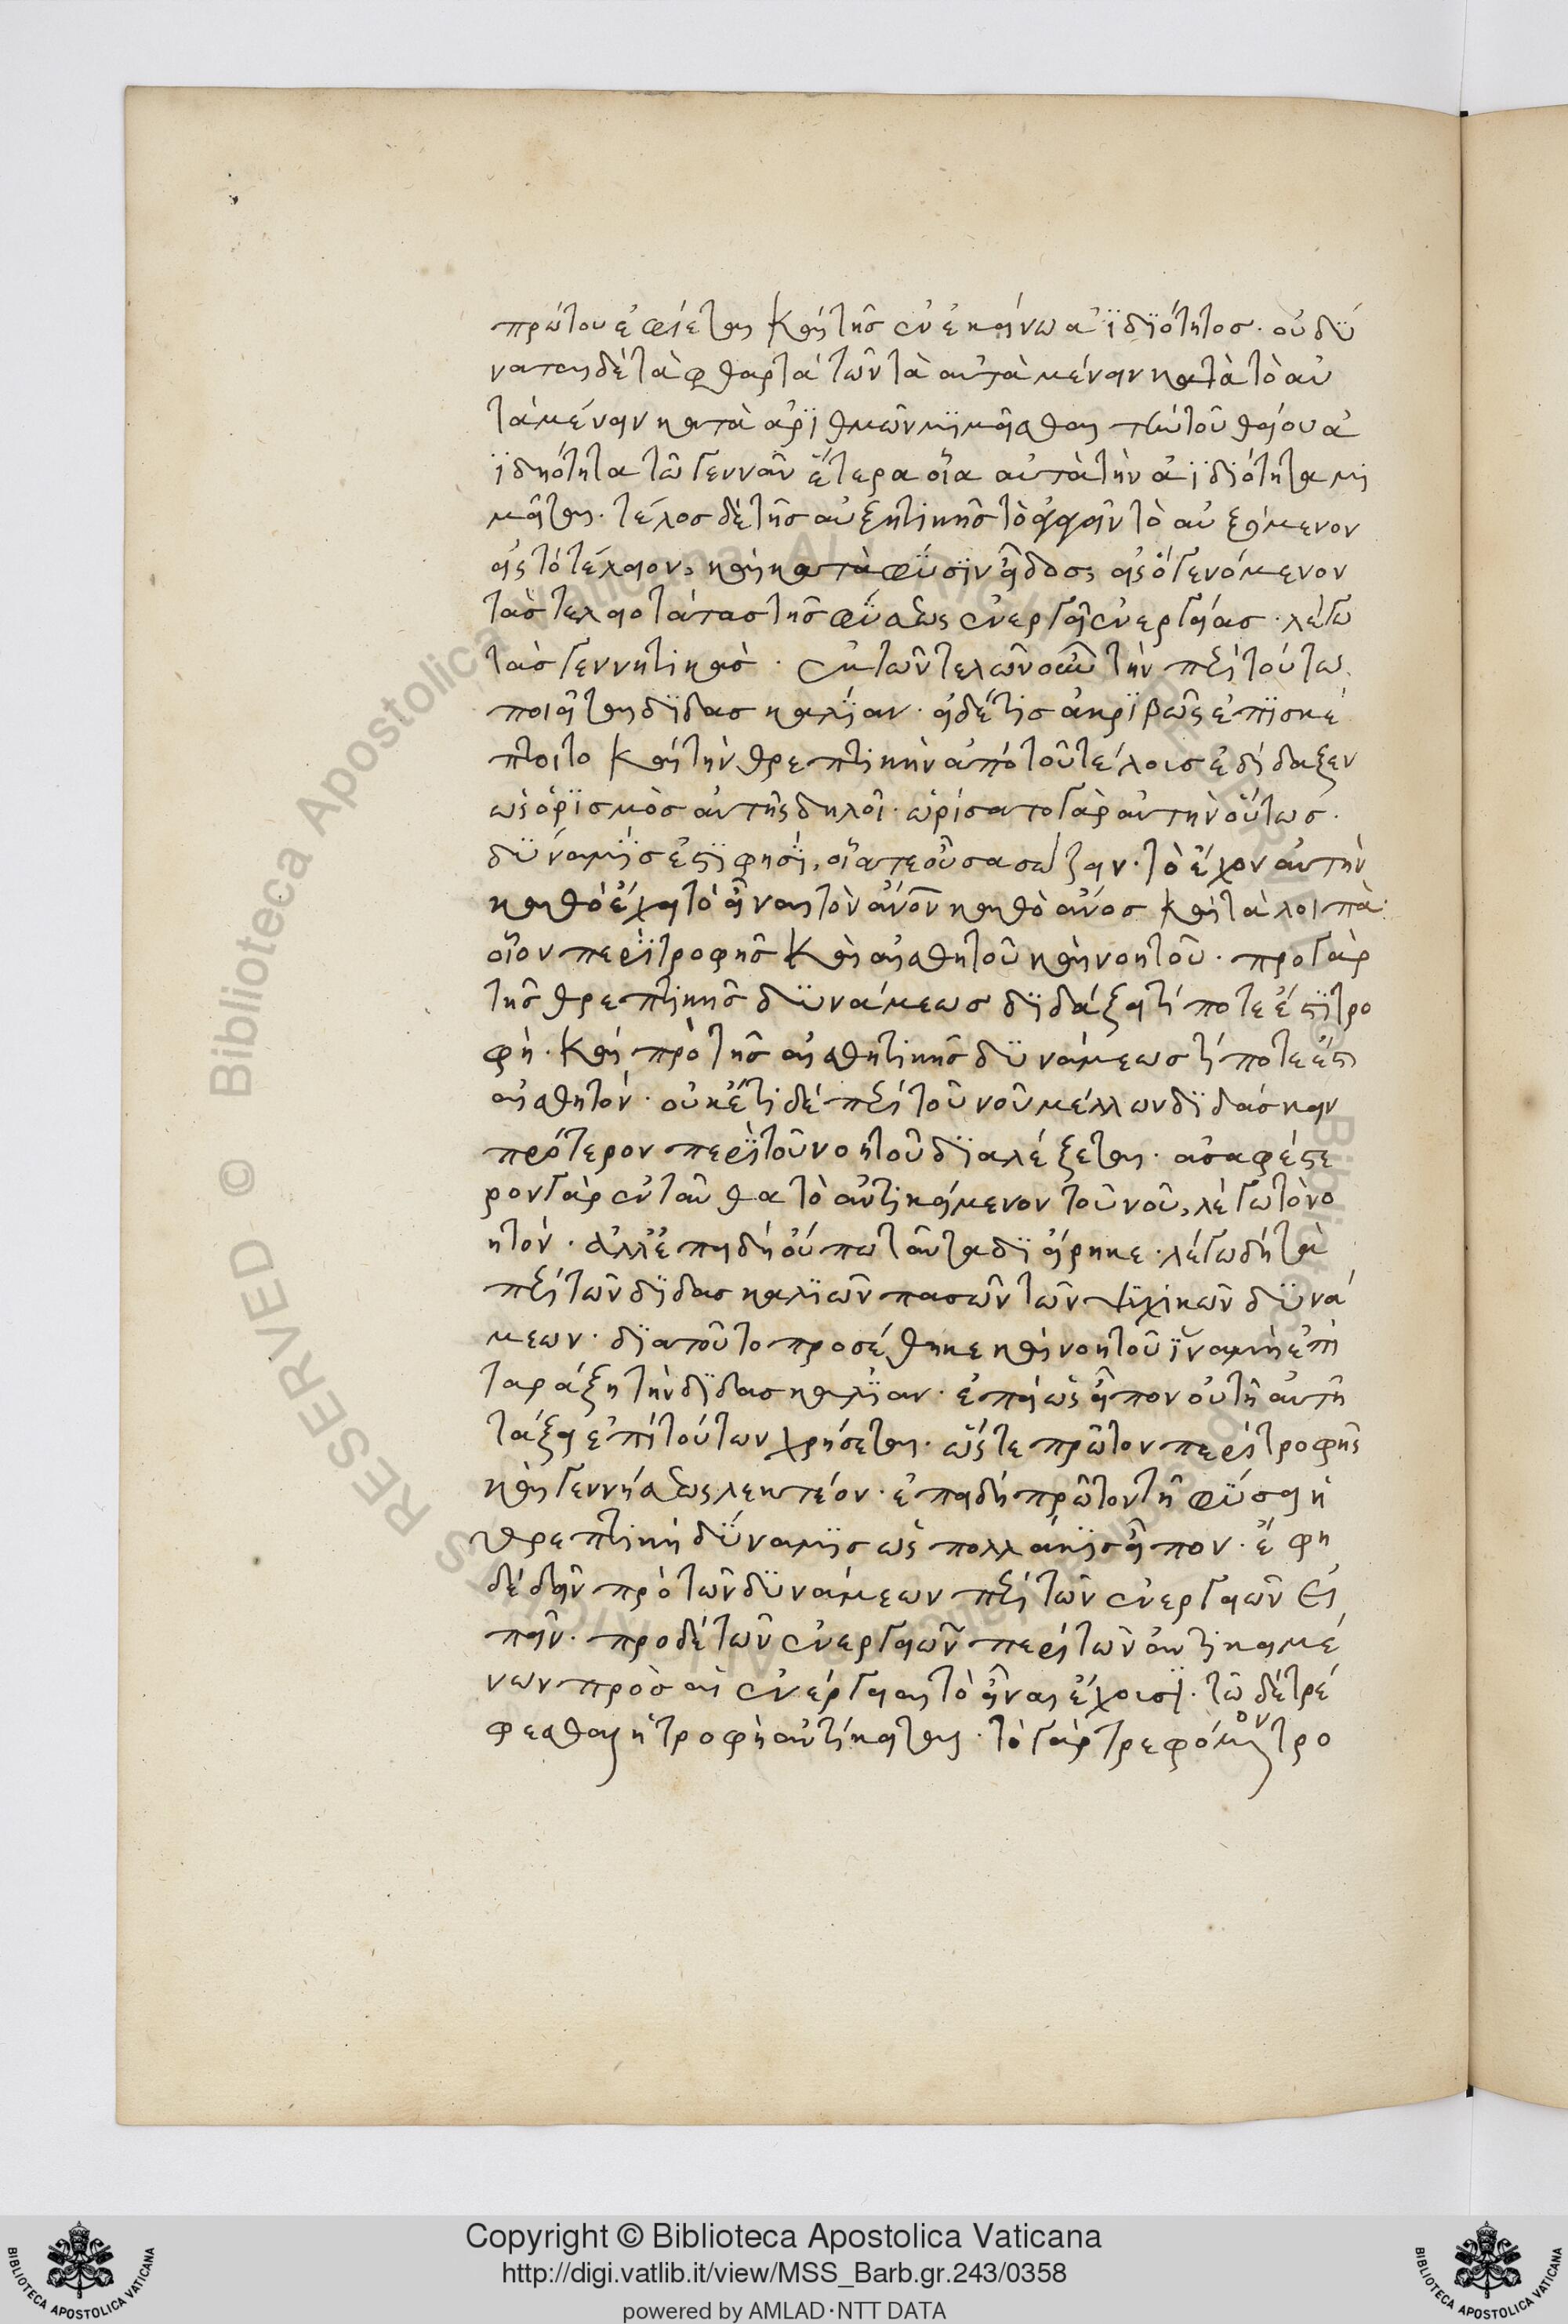 πρώτου ἐφίεται καὶ τῆς ἐν ἐκείνω ἀϊδιότητος. οὐ δύ
ναται δὲ τὰ φθαρτὰ τῶν τὰ αυτὰ μένειν κατὰ τὸ αὐ
τὰ μένειν κατὰ ἀριθμῶν μιμεῖσθαι τὴν τοῦ θείου ἀ
ϊδηότητα τῶ γεννᾶν ἕτερα οἷα αυτὰ τὴν ἀϊδιότητα μι
μεῖται. τέλος δὲ τῆς αὐξητικῆς τὸ ἀγαγεῖν τὸ αὐξόμενον
εἰς τὸ τέλειον, καὶ κατὰ φύσιν εἶδος, εἰς ὃ γενόμενον
τὰς τελειοτάτας τῆς φύσεως ἐνεργεῖ ἐνεργείας. λέγω
τὰς γεννητικάς. ἐκ τῶν τελῶν οὖν τὴν περὶ τούτων
ποιεῖται διδασκαλίαν. εἰ δέ τις ἀκριβῶς ἐπισκέ
πτοιτο καὶ τὴν θρεπτικὴν ἀπὸ τοῦ τέλους ἐδίδαξεν
ὡς ὁρισμὸς αὐτῆς δηλοῖ. ὡρίσατο γὰρ αὐτὴν οὕτως.
δύναμις ἐστὶ φησὶ, οἵα τε οὖσα σώζειν. τὸ ἔχον αὐτὴν
καθὸ ἔχει τὸ εἶναι τὸν ἄνον καθὸ ἄνος καὶ τὰ λοιπά.
οἷον περὶ τροφῆς καὶ αἰσθητοῦ καὶ νοητοῦ. προ γὰρ
τῆς θρεπτικῆς δυνάμεως διδάξει τί ποτε ἐστὶ τρο
φή. καὶ πρὸ τῆς αἰσθητικῆς δυνάμεως τί ποτε ἐστὶ
αἰσθητόν. οὐκέτι δὲ περὶ τοῦ νοῦ μέλλων διδάσκειν
πρότερον περὶ τοῦ νοητοῦ διαλέξεται. ἀσαφέστε
ρον γὰρ ἐνταῦθα τὸ ἀντικείμενον τοῦ νοῦ, λέγω τὸ νο
ητόν. ἀλλ' ἐπειδὴ οὔπω ταῦτα διείρηκε. λέγω δὴ τὰ
περὶ τῶν διδασκαλιῶν πασῶν τῶν ψυχικῶν δυνά
μεων. διατοῦτο προσέθηκε καὶ νοητοῦ ἵνα μὴ ἐπι
ταράξη τὴν διδασκαλίαν. ἐπεὶ ὡς εἶπον οὐ τῆ αὐτῆ
τάξει ἐπὶ τούτων χρήσεται. ὥστε πρῶτον περὶ τροφῆς
καὶ γεννήσεως λεκτέον. ἐπειδὴ πρῶτον τῆ φύσει ἡ
θρεπτικὴ δύναμις ὡς πολλάκις εἶπον. ἔφη
δὲ δεῖν πρὸ τῶν δυνάμεων περὶ τῶν ἐνεργειῶν εἰ
πεῖν. προ δὲ τῶν ἐνεργειῶν περὶ τῶν ἀντικειμέ
νων πρὸς ἃ αἱ ἐνέργειαι τὸ εἶναι ἔχουσι. τῶ δὲ τρέ
φεσθαι ἡ τροφὴ ἀντίκειται. τὸ γὰρ τρεφόμενον τρο
Copyright © Biblioteca Apostolica Vaticana
http://digi.vatlib.it/view/MSS_Barb.gr.243/0358
powered by AMLAD·NTT DATA